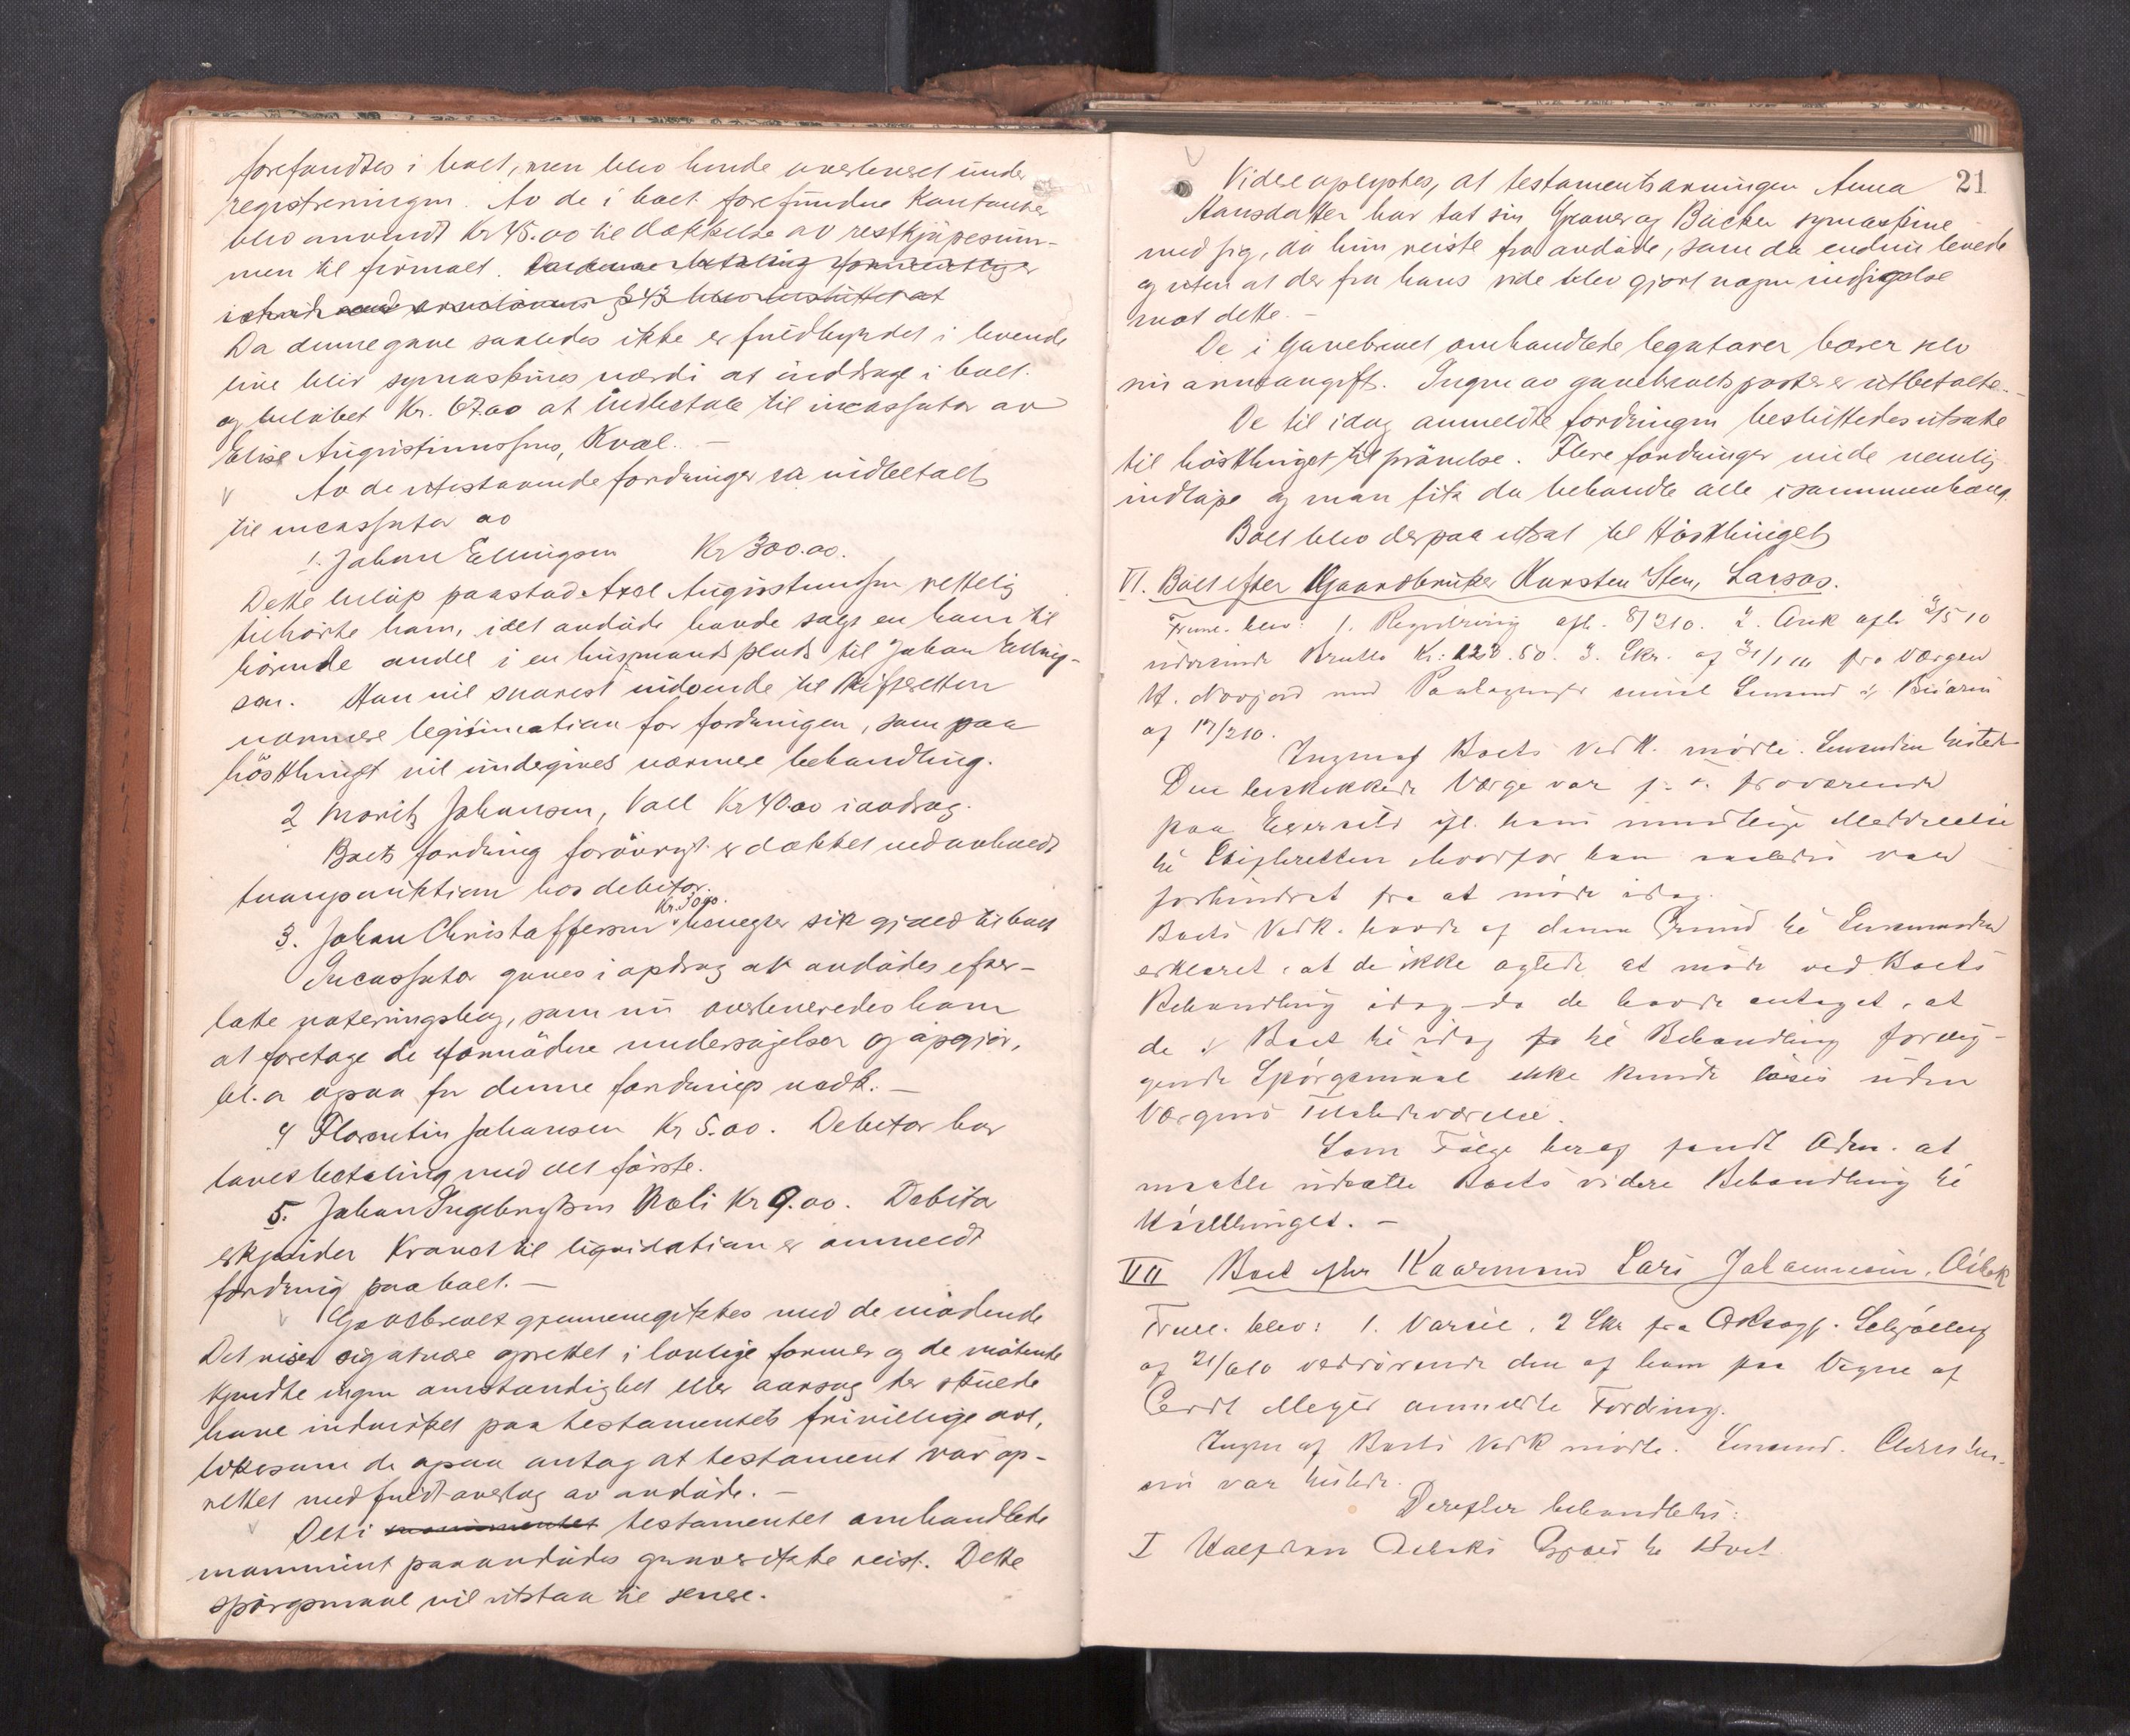 forefandtes i boet, men blev hende overleveret under
registreringen. Av de i boet forefundne kontanter
blev anvendt Kr 45.00 til dækkelse av restkjøpesum-
men til firmaet.
Da denne gave saaledes ikke er fuldbyrdet i levende
live blir symaskinens værdi at inddrage i boet
og beløbet Kr. 67.00 at indbetale til incassator av
Elise Augustinussens, Kval. –
Av de utestaaende fordringer er indbetalt
til incassator av
1. Johan Ellingsen Kr 300.00.
Dette beløp paastod Axel Augustinussen rettelig
tilhørte ham, idet avdøde havde solgt en ham til
hørende andel i en husmandsplads til Johan Elling-
sen. Han vil snarest indsende til skifteretten
nærmere legitimation for fordringen, som paa
høstthinget vil undergives nærmere behandling.
2 Moritz Johansen, Vall Kr 40.00 i avdrag.
Boets fordring forøvrigt er dækket ved avholdt
tvangsauktion hos debitor.
3. Johan Christoffersen Kr. 30.00. benegter sit gjæld til boet
Incassator gaves i opdrag at avdødes efter-
latte noteringsbog, som nu overleveredes ham
at foretage de fornødne undersøgelser og opgjør,
bl. a ogsaa for denne fordrings vedk. –
4 Florentin Johansen Kr 5.00. Debitor har
lovet betaling med det første.
5. Johan Ingebrigtsen Kr 9.00. Debitor
erkjender Kravet til liquidation er anmeldt
fordring paa boet. –
Gavebrevet gjennemgikkes med de mødende
Det viser sig at være oprettet i lovlige former og de møtende
kjendte ingen omstændighet eller aarsag der skulde
have indvirket paa testamentets frivillige
likesom de ogsaa antog at testament var op-
rettet med fuldt overlæg av avdøde. –
Det i testamentet omhandlede
monument paa avdødes grav er ikke reist. Dette
spørgsmaal vil utstaa til senere.
21
Videre oplystes, at testamentsarvingen Anna
Hansdatter har tat sin Grover og Backer symaskine
med sig, da hun reiste fra avdøde, som da endnu levede
og uten at der fra hans side blev gjort nogen indsigelse
mot dette. –
De i Gavebrevet omhandlede legatarer bærer selv
sin arveavgift. Ingen av gavebrevets poster er utbetalte. –
De til idag anmeldte fordringer besluttedes utsatte
til høstthinget til prøvelse. Flere fordringer vilde nemlig
indløpe og man fik da behandle alle i sammenhæng.
Boet blev derpaa utsat til Høstthinget
VI. Boet efter Gaardbruker Karsten Sten, Larsos.
Freml. blev: 1. Registrering afh. 8/2 10. 2. Auk afh. 2/5 10
udvisende Brutto Kr: 123.50. 3. Skr. af 31/1 10 fra Værgen
af 17/2 10.
Ingen af Boets Vedk. mødte. Lensmanden tilstede
Den beskikkede Værge var p. t. fraværende
paa ifl. hans mundtlige Meddelelse
til Skifteretten hvorfor han saaledes var
forhindret fra at møde idag.
Boets Vedk. havde af denne Grund til Lensmanden
erklæret, at de ikke agtede at møde ved Boets
Behandling idag da de havde antaget, at
de i Boet til idag til Behandling forelig-
gende Spørgsmaal ikke kunde løses uden
Værgens Tilstedeværelse.
Som Følge heraf fandt Adm. at
maatte udsætte Boets videre Behandling til
Høstthinget. –
VII Boet efter Kaarmand Lars Johannesen,
Freml. blev: 1. Varsel. 2 Skr fra ORsagf. Schjølberg
af 21/6 10 vedrørende den af ham paa Vegne af
Gerdt Meyer anmeldte Fordring.
Ingen af Boets Vedk mødte. Lensmd.
var tilstede.
Derefter behandledes:
I